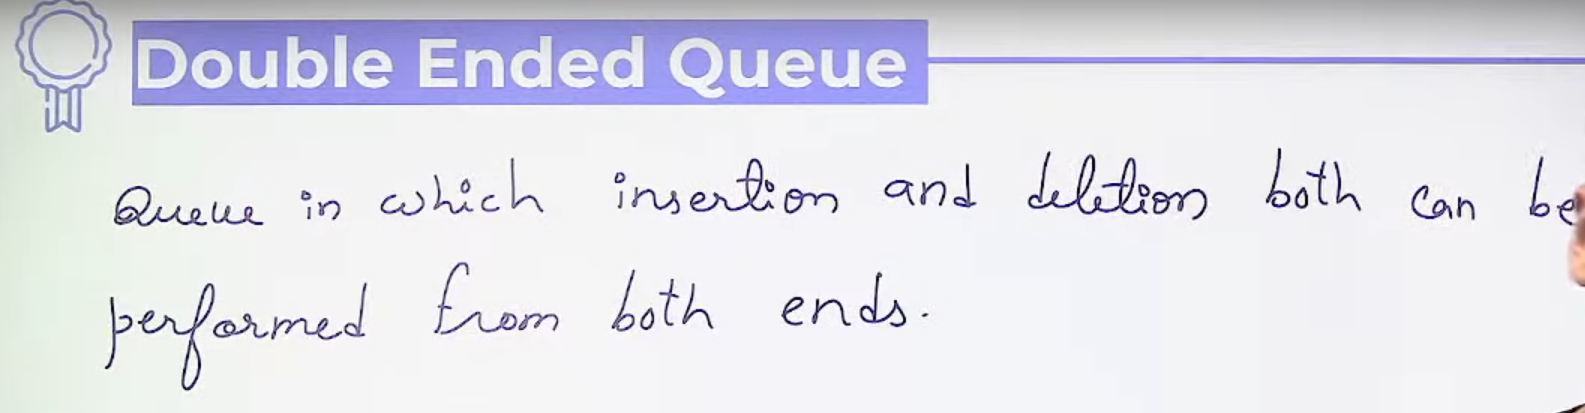 Double Ended Queue
Queue in which insertion and deletion both can be
performed from both ends.